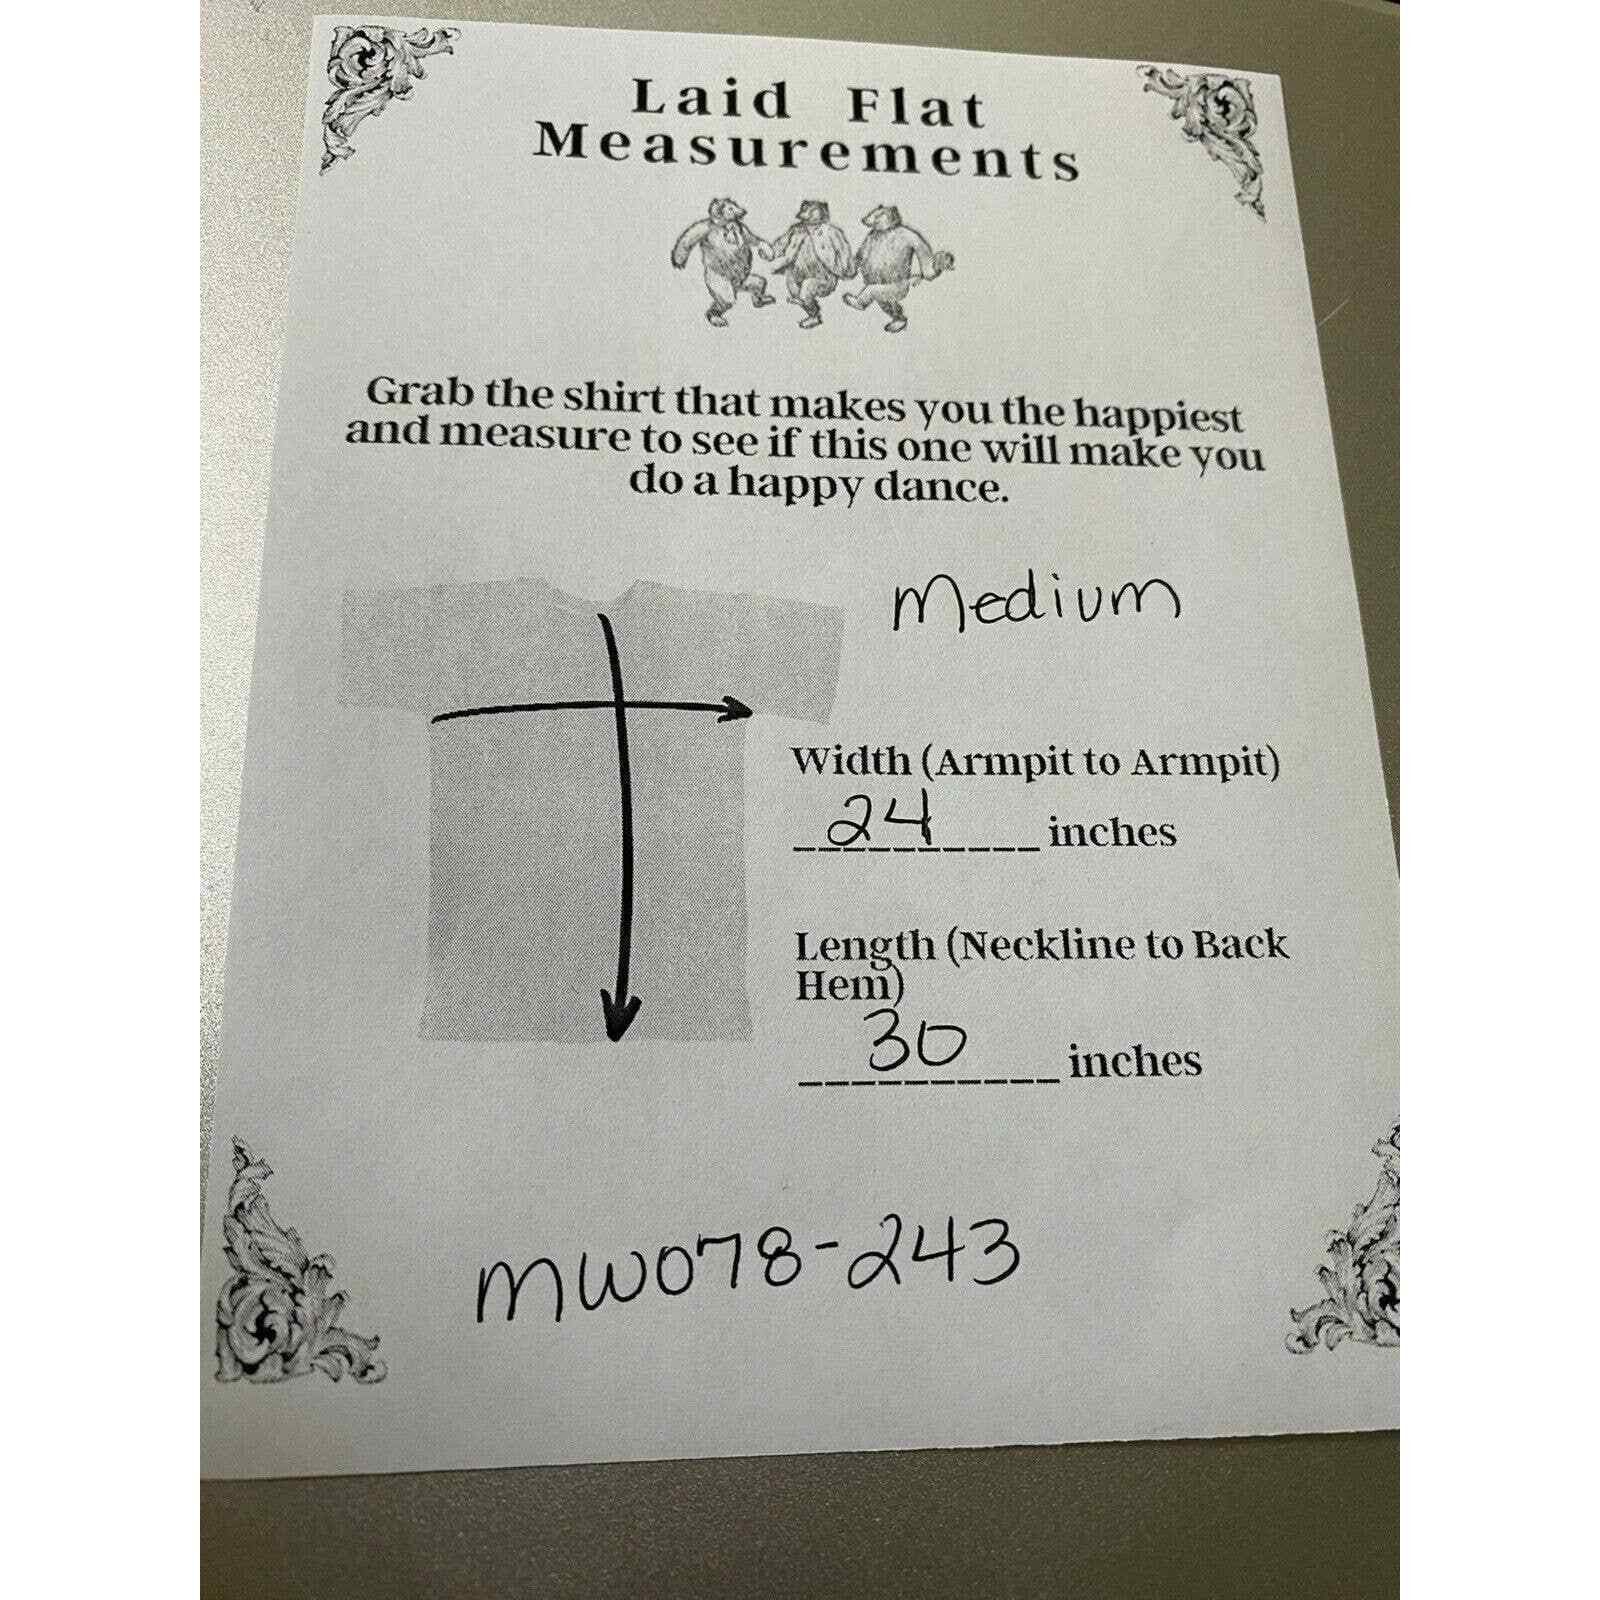 Laid Flat
Measurements
Grab the shirt that makes you the happiest
and measure to see if this one will make you
do a happy dance.
Medium
Width (Armpit to Armpit)
24 inches
Length (Neckline to Back
Hem)
30 inches
MW078-243